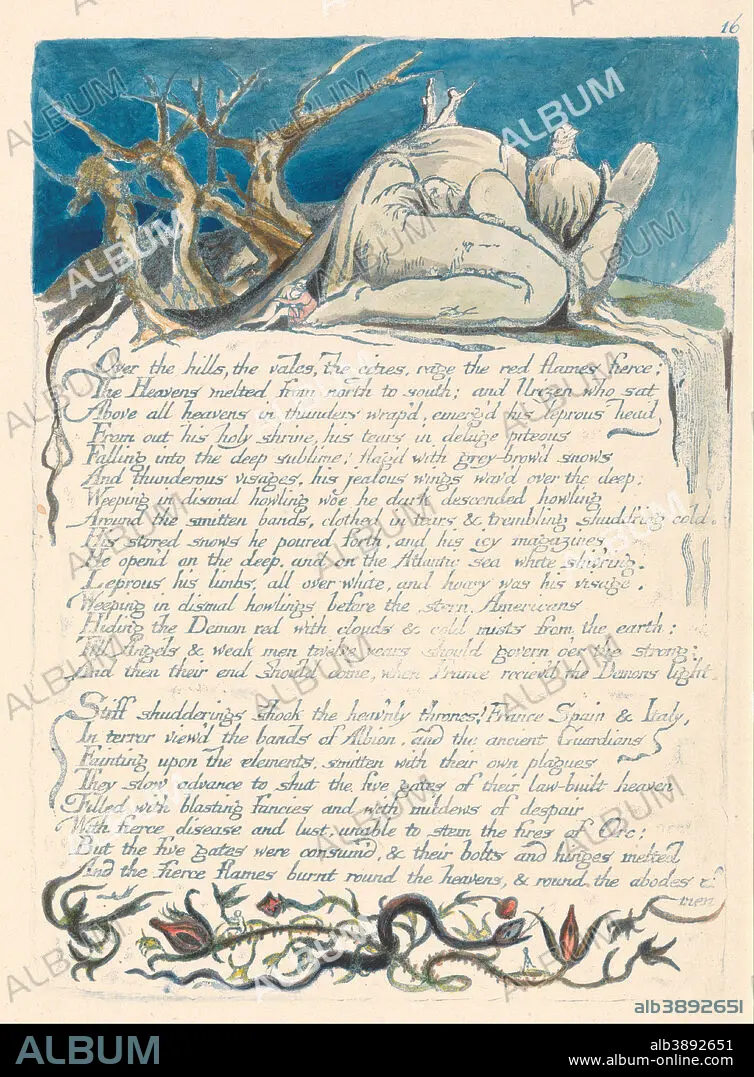 16
Over the hills, the vales, the cities, rage the red flames fierce;
The Heavens melted from north to south; and Urizen who sat
Above all heavens in thunders wrap'd, emerg'd his leprous head
From out his holy shrine, his tears in deluge piteous
Falling into the deep sublime! flag'd with grey-brow'd snows
And thunderous visages, his jealous wings wav'd over the deep;
Weeping in dismal howling woe he dark descended howling
Around the smitten bands, clothed in tears & trembling shudd'ring cold.
His stored snows he poured forth, and his icy magazines
He open'd on the deep, and on the Atlantic sea white shiv'ring.
Leprous his limbs, all over white, and hoary was his visage.
Weeping in dismal howlings before the stern Americans
Hiding the Demon red with clouds & cold mists from the earth;
Till Angels & weak men twelve years should govern o'er the strong:
And then their end should come, when France reciev'd the Demons light.
Stiff shudderings shook the heav'nly thrones! France Spain & Italy,
In terror view'd the bands of Albion, and the ancient Guardians
Fainting upon the elements, smitten with their own plagues
They slow advance to shut the five gates of their law-built heaven
Filled with blasting fancies and with mildews of despair
With fierce disease and lust, unable to stem the fires of Orc;
But the five gates were consum'd, & their bolts and hinges melted
And the fierce flames burnt round the heavens, & round the abodes of
men
alb3892651
ALBUM
alb3892651
www.album-online.com